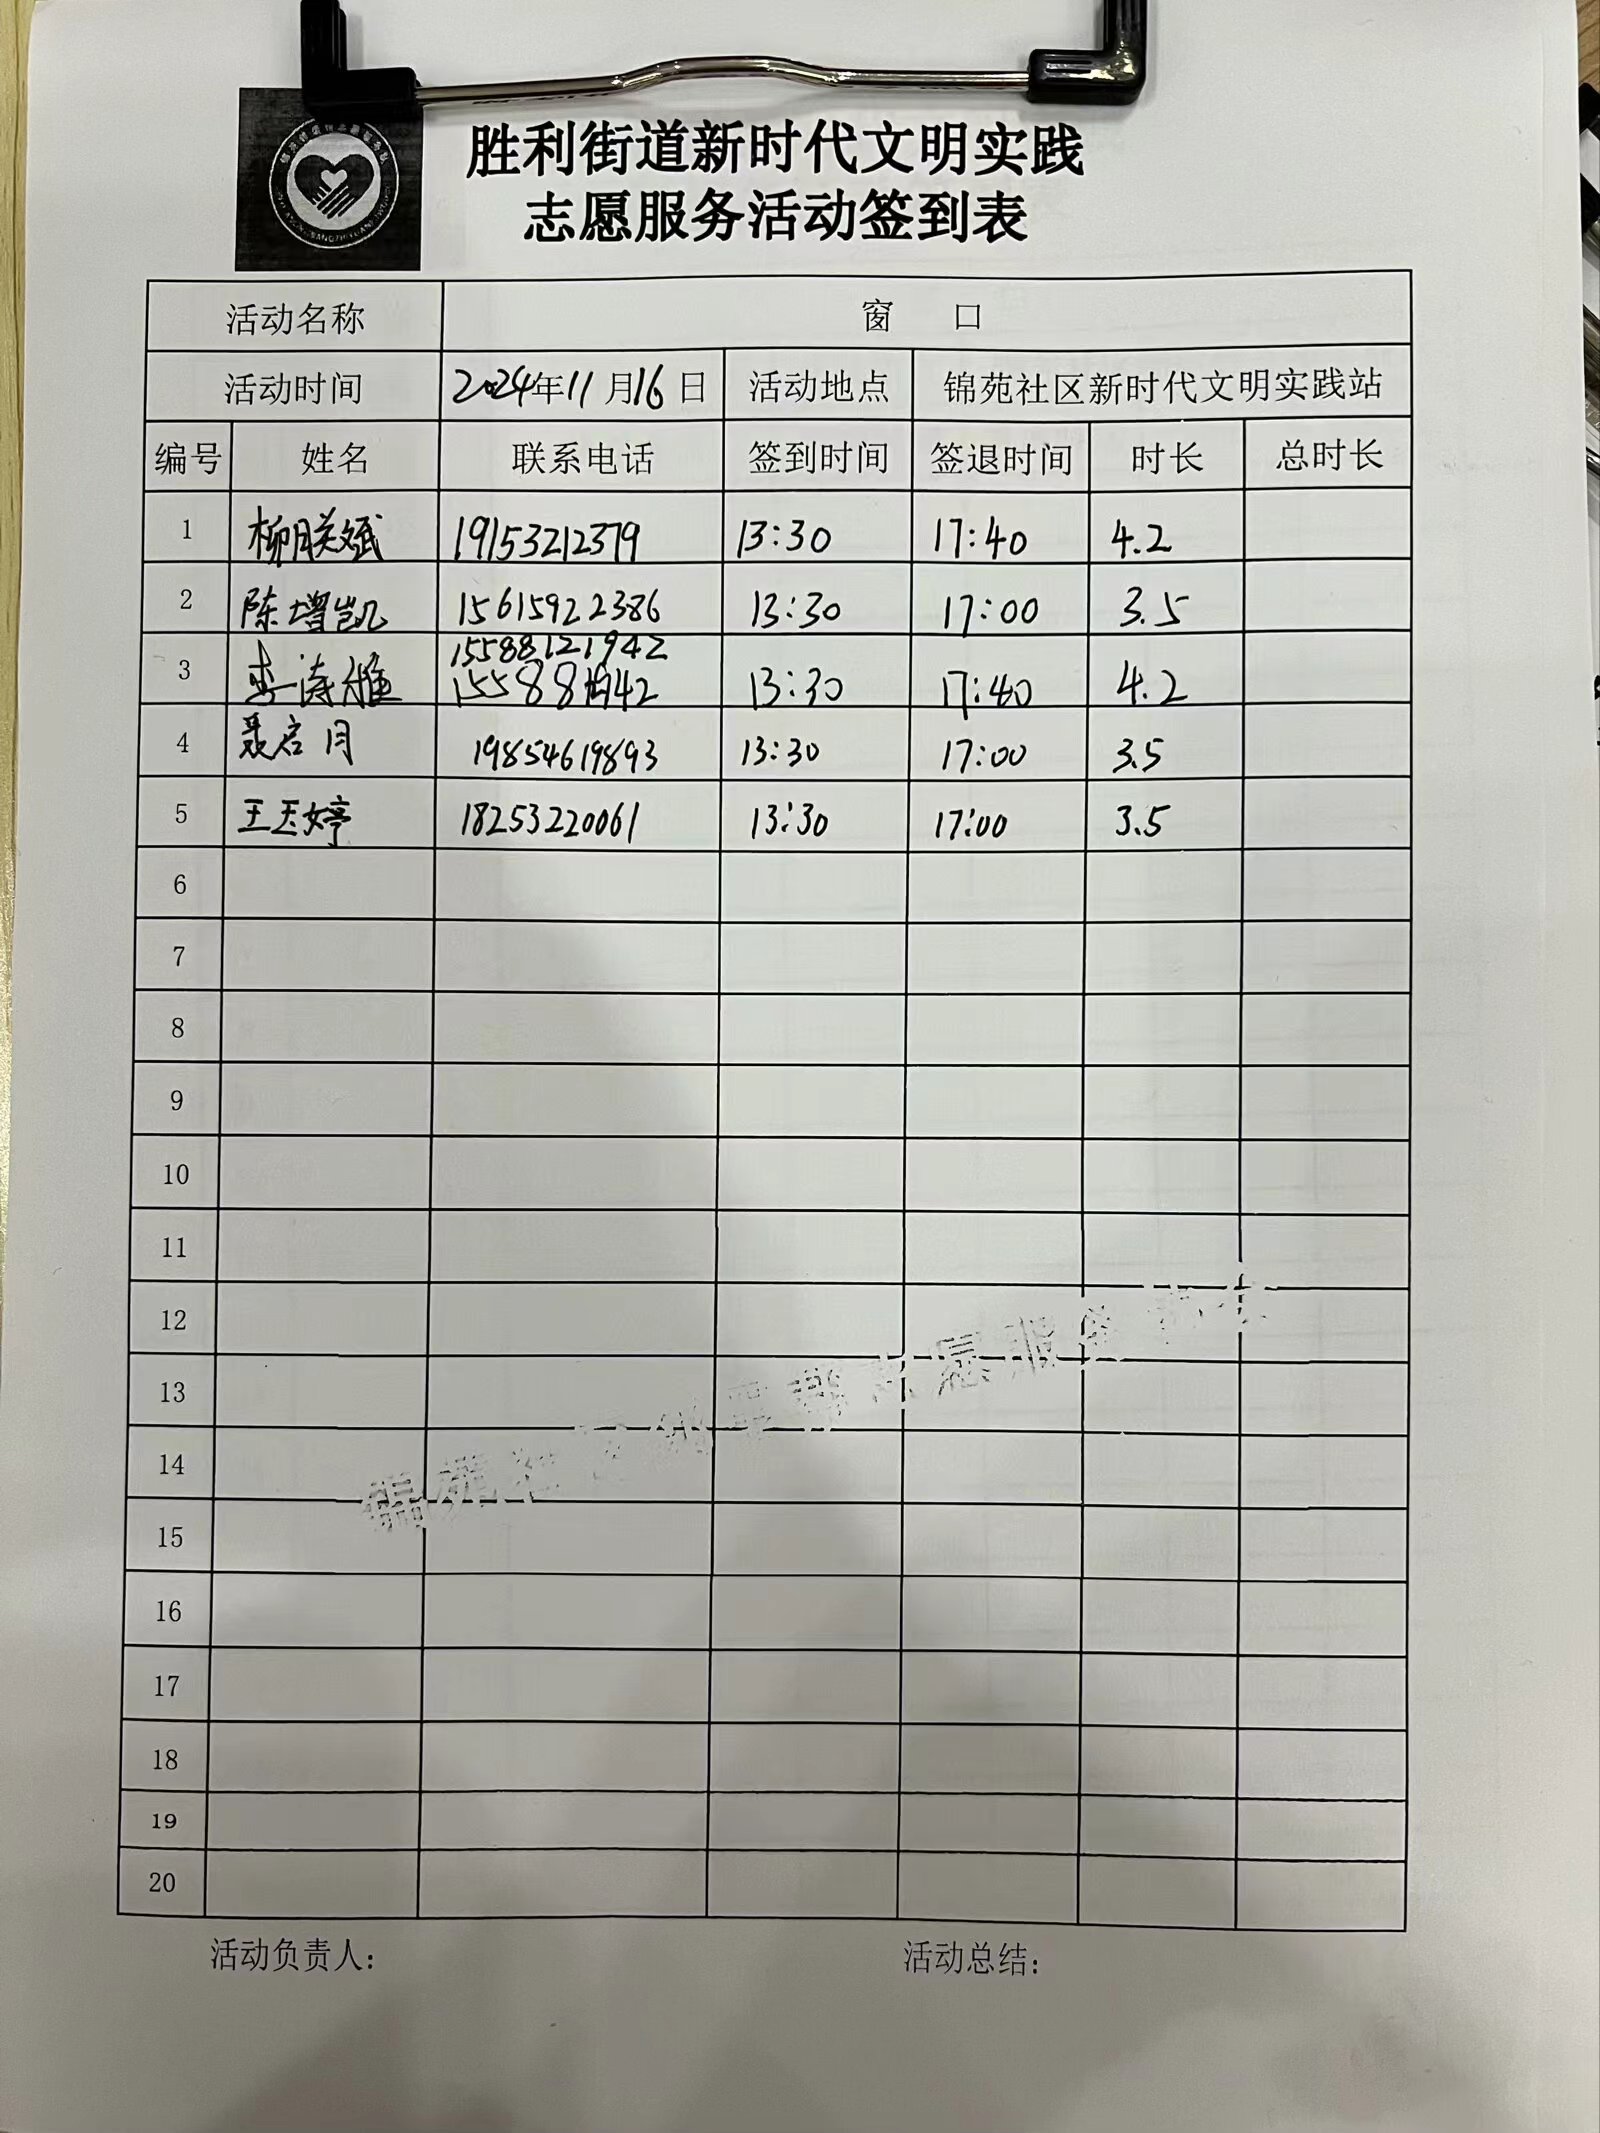 胜利街道新时代文明实践
志愿服务活动签到表
活动名称 窗 口
活动时间 2024年11月16日 活动地点 锦苑社区新时代文明实践站
编号 姓名 联系电话 签到时间 签退时间 时长 总时长
1 柳朕斌 19153212379 13:30 17:40 4.2
2 陈增凯 15615922386 13:30 17:00 3.5
15588121942
3 李涛雅 13:30 17:40 4.2
4 聂启月 19854619893 13:30 17:00 3.5
5 王玉婷 18253220061 13:30 17:00 3.5
6
7
8
9
10
11
12
13
14
15
16
17
18
19
20
活动负责人： 活动总结：